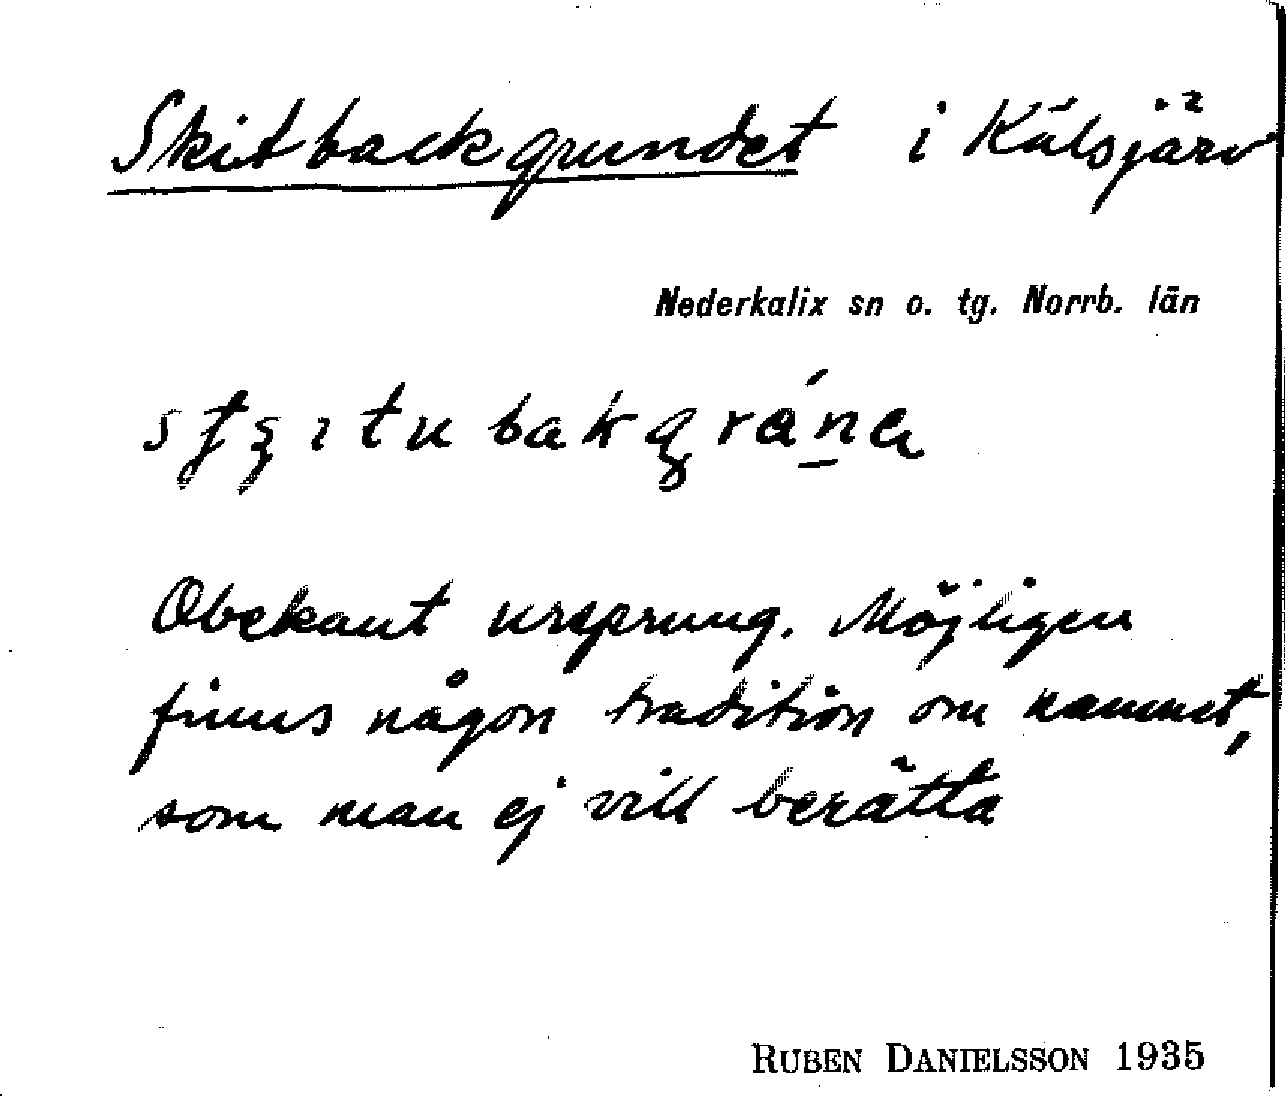 Skitbackgrundet i Kälsjärv
Nederkalix sn o. tg. Norrb. län
Obekant ursprung. Möjligen
finns någon tradition om namnet,
som man ej vill berätta
RUBEN DANIELSSON 1935